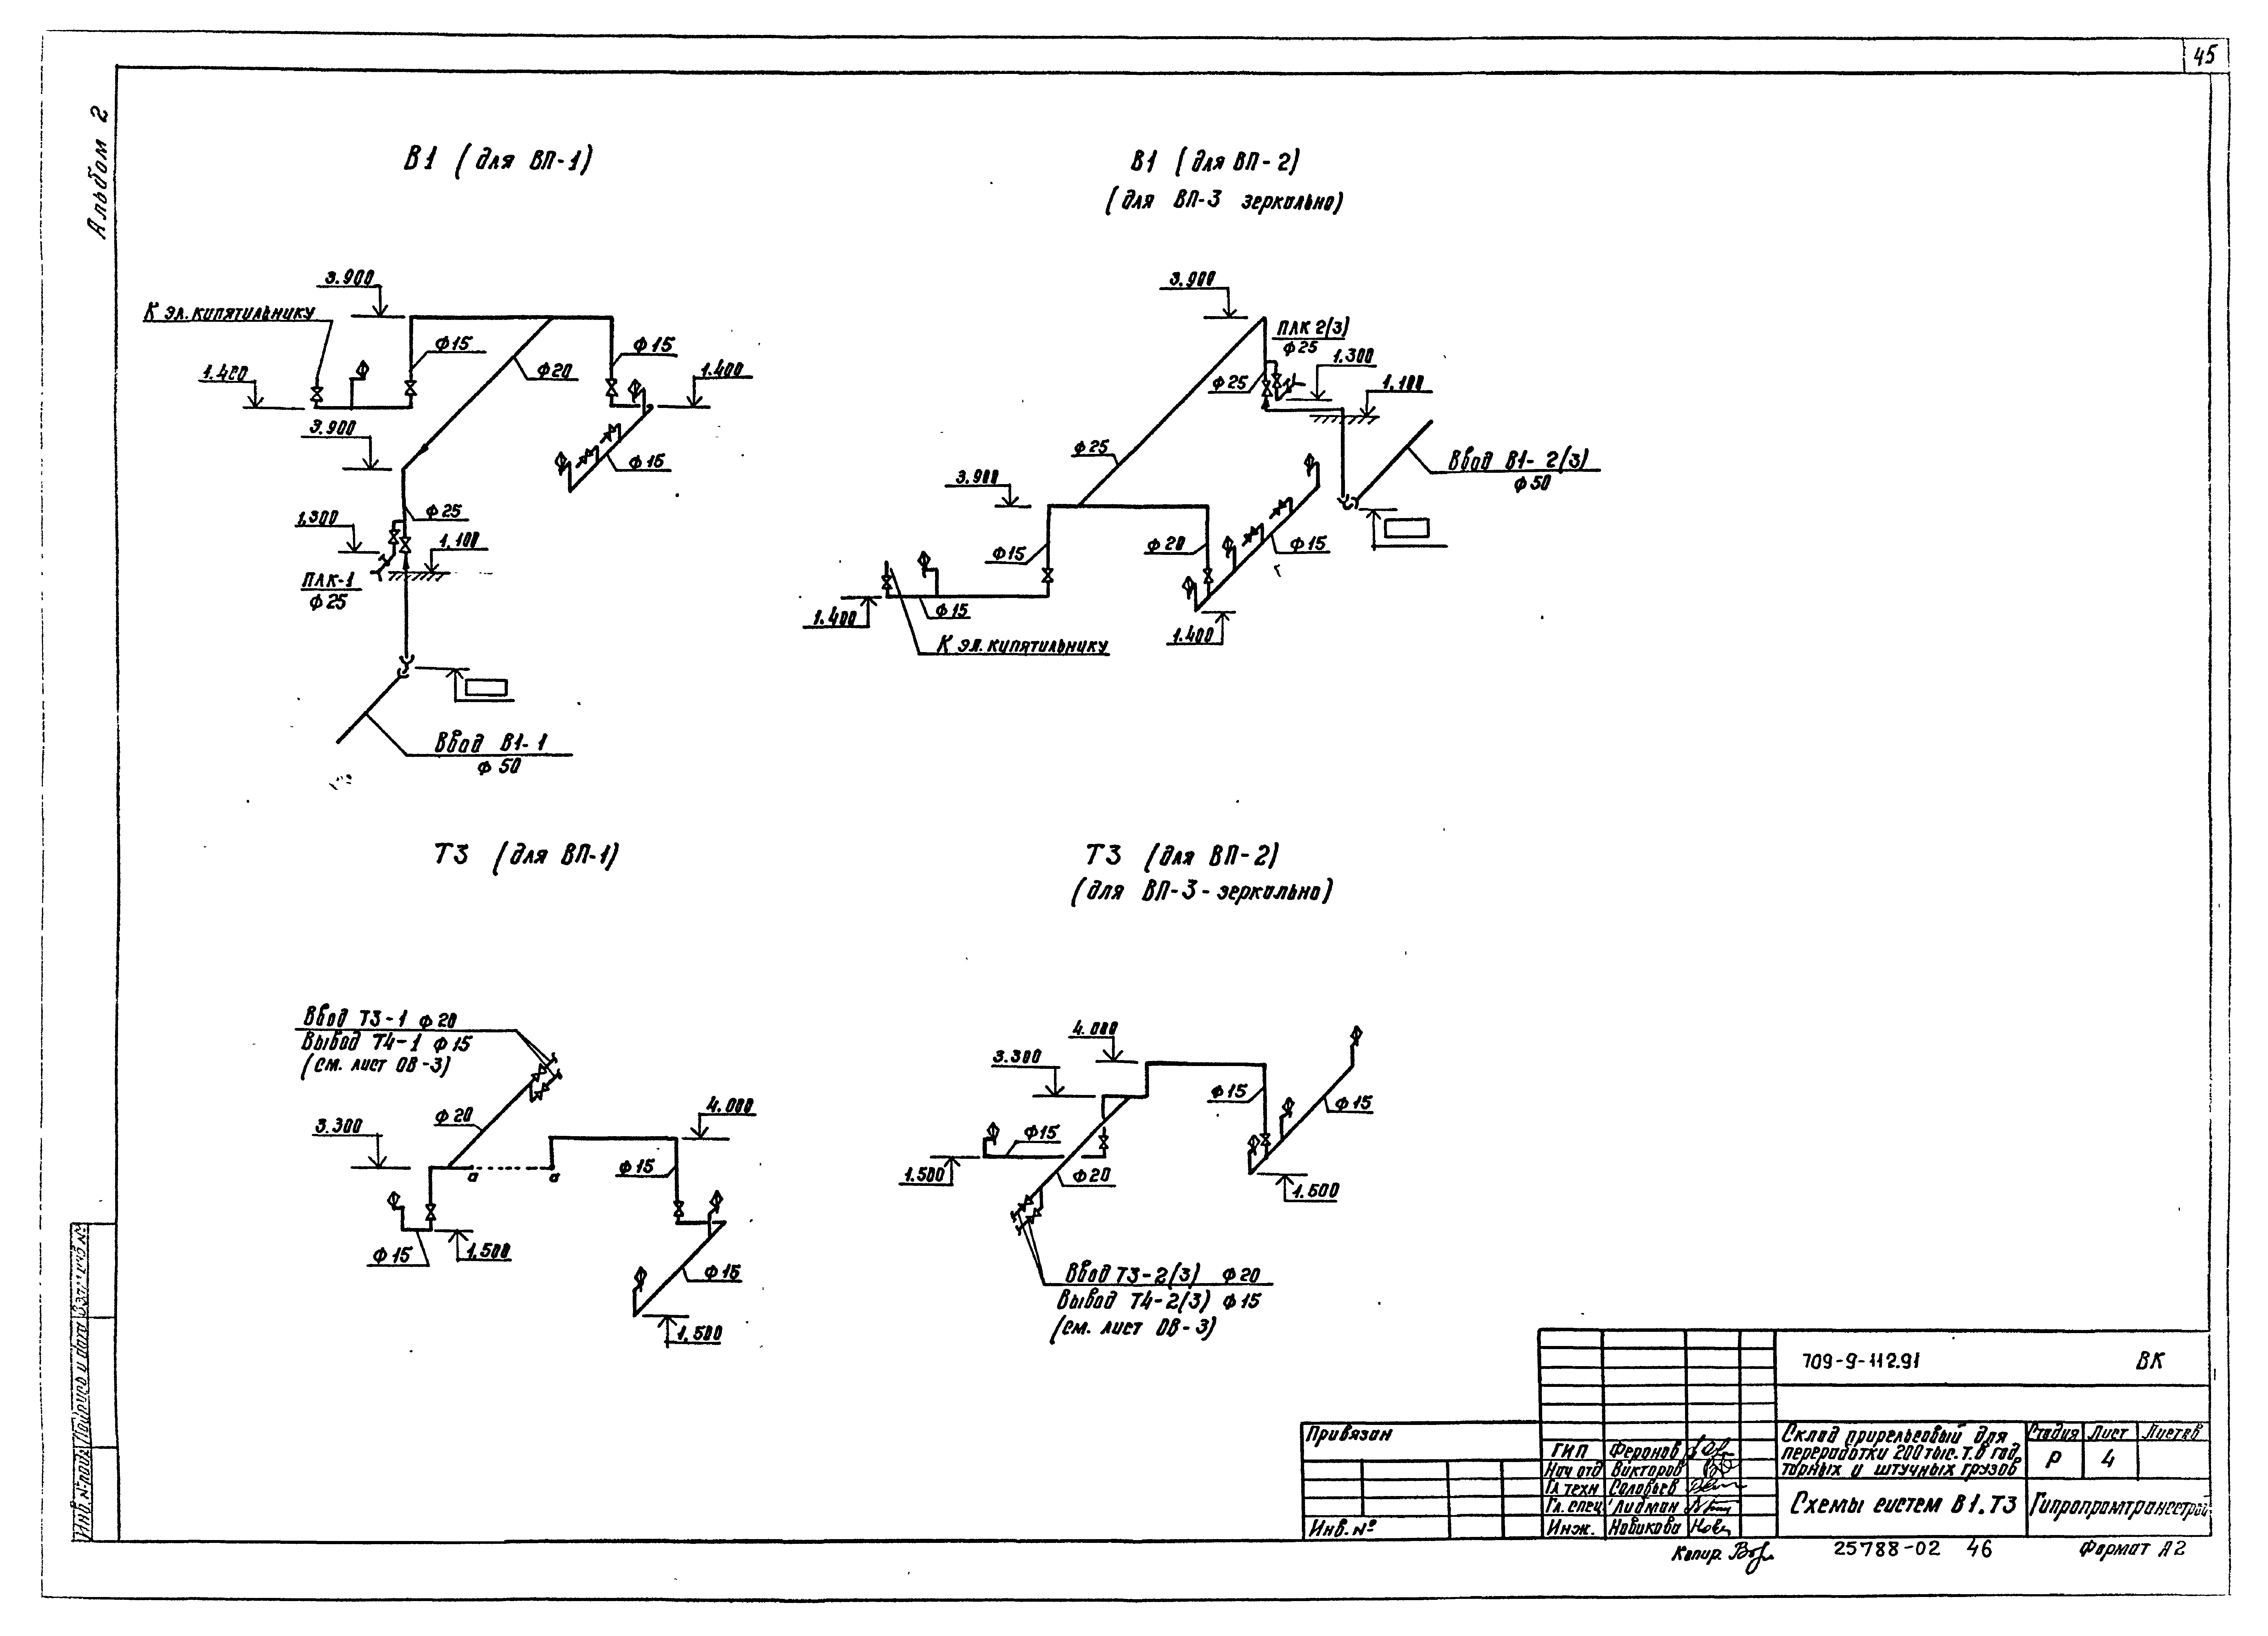 45
Альбом 2
В1 (для ВП-1)
3.900
К эл. кипятильнику
ф15
ф20
ф15
1.400
1.400
3.900
ф15
ф25
1.300
1.100
ПЛК-1
ф25
Ввод В1-1
ф50
В1 (для ВП-2)
(для ВП-3 зеркально)
3.900
ПЛК 2/3)
ф25
1.300
ф25
1.100
ф25
Ввод В1-2/3)
ф50
3.900
ф15
ф20
ф15
ф15
1.400
1.400
К эл. кипятильнику
Т3 (для ВП-1)
Ввод Т3-1 ф20
Вывод Т4-1 ф15
(см. лист ОВ-3)
ф20
4.000
3.300
ф15
а
а
ф15
1.500
ф15
1.500
Т3 (для ВП-2)
(для ВП-3-зеркально)
4.000
3.300
ф15
ф15
ф15
1.500
ф20
1.500
Ввод Т3-2/3) ф20
Вывод Т4-2/3) ф15
(см. лист ОВ-3)
Инв. № подл. Подпись и дата Взам. инв. №
709-9-112.91 ВК
Привязан
Инв. №
ГИП Феронов
Нач отд Викторов
Гл техн Соловьев
Гл. спец Лидман
Инж. Новикова
Склад прирельсовый для
переработки 200 тыс. т. в год
тарных и штучных грузов
Стадия Лист Листов
Р 4
Схемы систем В1. Т3
Гипропромтрансстрой
Копир.
25788-02 46
Формат А2